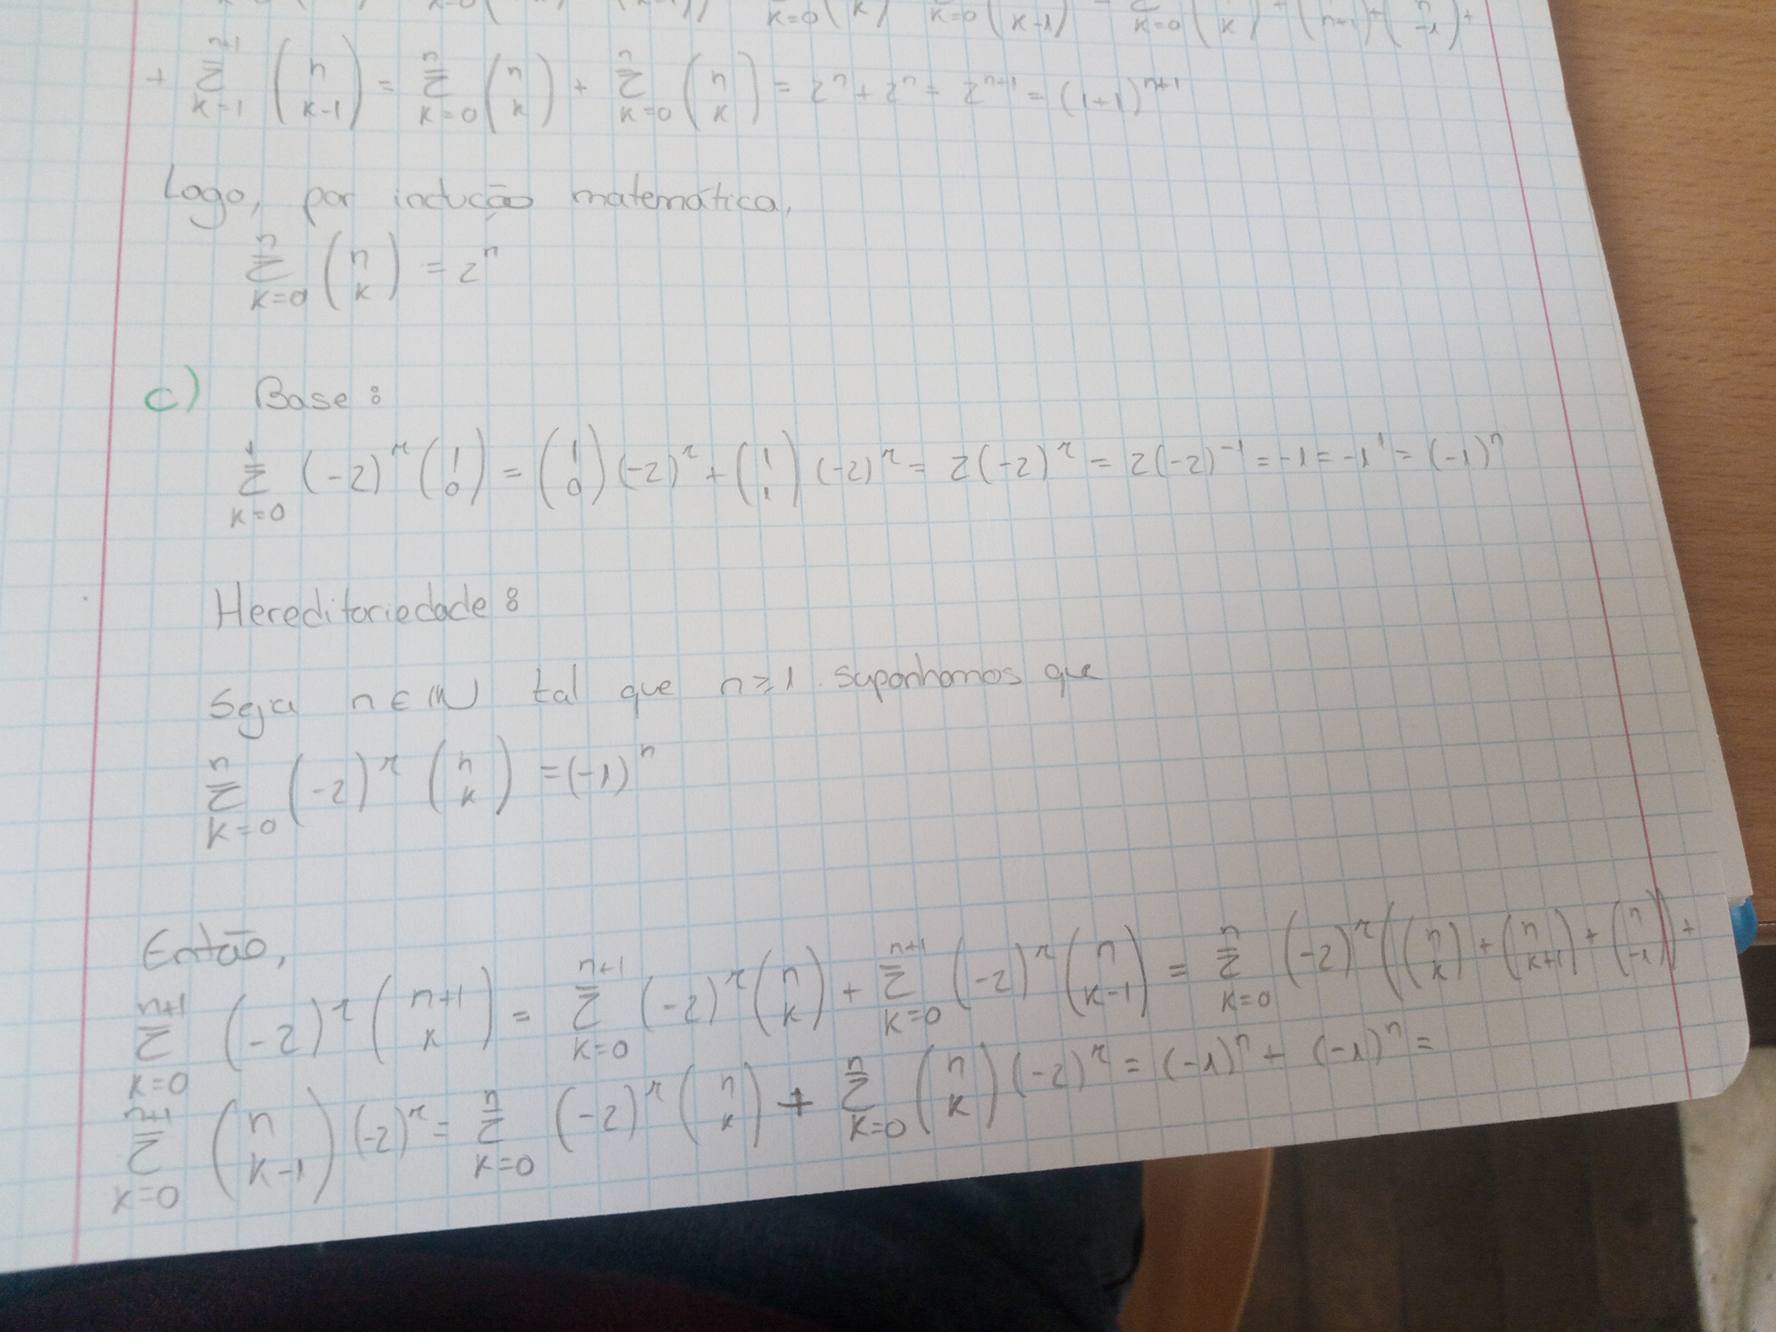 + Σ_{k=1}^{n+1} (n k-1) = Σ_{k=0}^{n} (n k) + Σ_{k=0}^{n} (n k) = 2^n + 2^n = 2^{n+1} = (1+1)^{n+1}
Logo, por indução matemática,
Σ_{k=0}^{n} (n k) = 2^n
c) Base:
Σ_{k=0}^{1} (-2)^r (1 0) = (1 0)(-2)^r + (1 1)(-2)^r = 2(-2)^r = 2(-2)^{-1} = -1 = -1^1 = (-1)^n
Hereditariedade:
Seja n ∈ ℕ tal que n ≥ 1. Suponhamos que
Σ_{k=0}^{n} (-2)^r (n k) = (-1)^n
Então,
Σ_{k=0}^{n+1} (-2)^r (n+1 k) = Σ_{k=0}^{n+1} (-2)^r (n k) + Σ_{k=0}^{n+1} (-2)^r (n k-1) = Σ_{k=0}^{n} (-2)^r ((n k) + (n k+1) + (n -1) +
Σ_{k=0}^{n+1} (n k-1) (-2)^r = Σ_{k=0}^{n} (-2)^r (n k) + Σ_{k=0}^{n} (n k) (-2)^r = (-1)^n + (-1)^n =